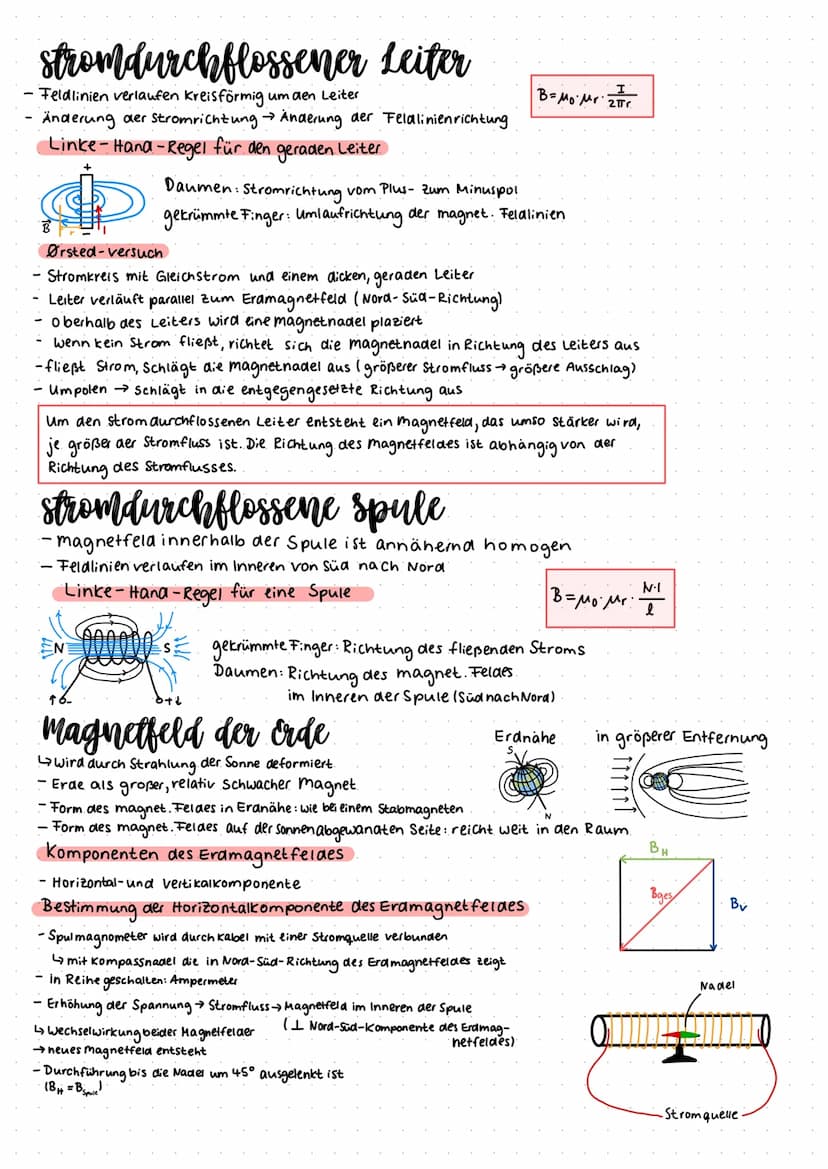 stromdurchflossener Leiter
- Feldlinien verlaufen kreisförmig um den Leiter
B = μ₀ · μr · I / 2πr
- Änderung der Stromrichtung → Änderung der Feldlinienrichtung
Linke-Hand-Regel für den geraden Leiter
+
Daumen: Stromrichtung vom Plus- zum Minuspol
gekrümmte Finger: Umlaufrichtung der magnet. Feldlinien
B r - I
Ørsted-versuch
- Stromkreis mit Gleichstrom und einem dicken, geraden Leiter
- Leiter verläuft parallel zum Erdmagnetfeld (Nord-Süd-Richtung)
- oberhalb des Leiters wird eine magnetnadel plaziert
- wenn kein Strom fließt, richtet sich die magnetnadel in Richtung des Leiters aus
- fließt Strom, Schlägt die magnetnadel aus (größerer Stromfluss → größere Ausschlag)
- Umpolen → Schlägt in die entgegengesetzte Richtung aus
Um den Stromdurchflossenen Leiter entsteht ein Magnetfeld, das umso stärker wird,
je größer der Stromfluss ist. Die Richtung des Magnetfeldes ist abhängig von der
Richtung des Stromflusses.
stromdurchflossene Spule
- magnetfeld innerhalb der Spule ist annähernd homogen
- Feldlinien verlaufen im Inneren von Süd nach Nord
Linke-Hand-Regel für eine Spule
B = μ₀ · μr · N·I / l
N S
gekrümmte Finger: Richtung des fließenden Stroms
Daumen: Richtung des magnet. Feldes
im Inneren der Spule (Süd nach Nord)
↑ - + ↓
Magnetfeld der Erde
Erdnähe
in größerer Entfernung
↳ wird durch Strahlung der Sonne deformiert
S
- Erde als großer, relativ schwacher Magnet
- Form des magnet. Feldes in Erdnähe: wie bei einem Stabmagneten
N
- Form des magnet. Feldes auf der Sonnenabgewandten Seite: reicht weit in den Raum
Komponenten des Erdmagnetfeldes
BH
- Horizontal- und Vertikalkomponente
Bges
BV
Bestimmung der Horizontalkomponente des Erdmagnetfeldes
- Spulmagnometer wird durch Kabel mit einer Stromquelle verbunden
↳ mit Kompassnadel die in Nord-Süd-Richtung des Erdmagnetfeldes zeigt
- in Reihe geschalten: Ampermeter
Nadel
- Erhöhung der Spannung → Stromfluss → Magnetfeld im Inneren der Spule
(⊥ Nord-Süd-Komponente des Erdmag-
netfeldes)
↳ Wechselwirkung beider Magnetfelder
→ neues Magnetfeld entsteht
- Durchführung bis die Nadel um 45° ausgelenkt ist
(BH = BSpule)
Stromquelle